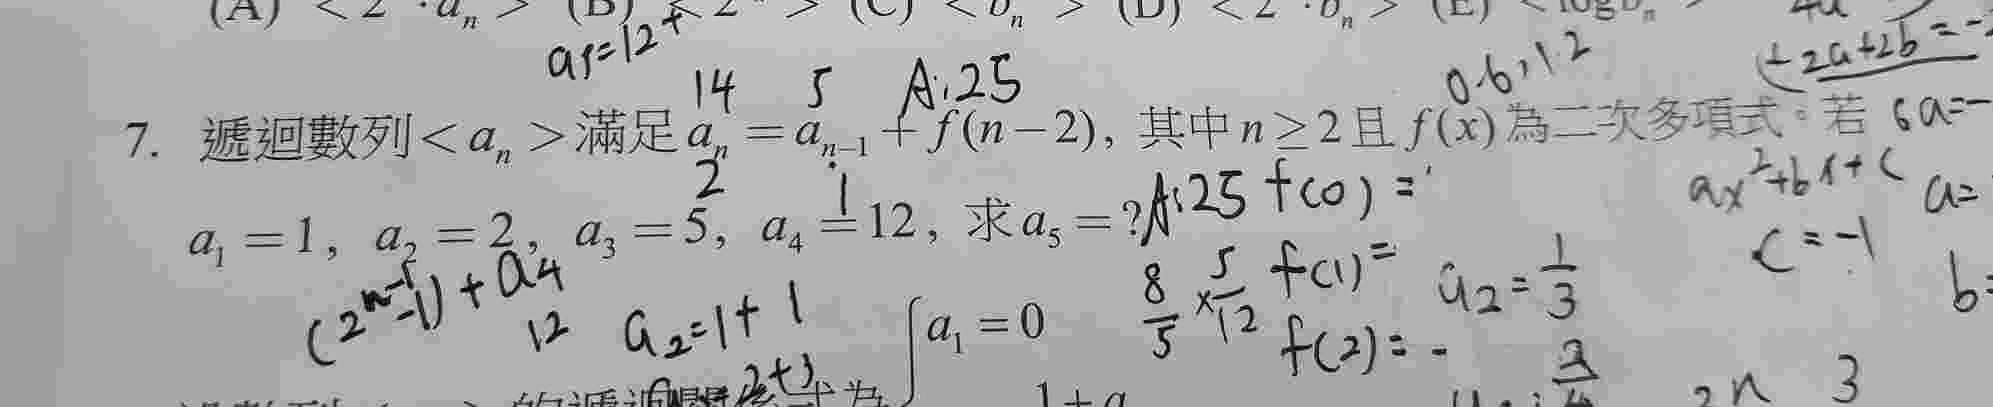 (A) < 2 · a_n > (B) < 2 > (C) < b_n > (D) < 2 · b_n > (E) < log b_n
a5=12+
14 5 A:25
0.6,12
+ 2a+2b=-
7. 遞迴數列<a_n>滿足 a_n = a_{n-1} + f(n-2), 其中 n ≥ 2 且 f(x) 為二次多項式。若
6a=-
2 1 A:25 f(0)=
ax²+bx+c a=
a_1 = 1, a_2 = 2, a_3 = 5, a_4 = 12, 求 a_5 = ?
c=-1
(2^{n-1}-1)+a4
12 a2=1+1
8/5 × 5/12 f(1)= a2=1/3
b=
a_1 = 0
f(2)=-
2+3
的遞迴關係式為
1+a
2n 3